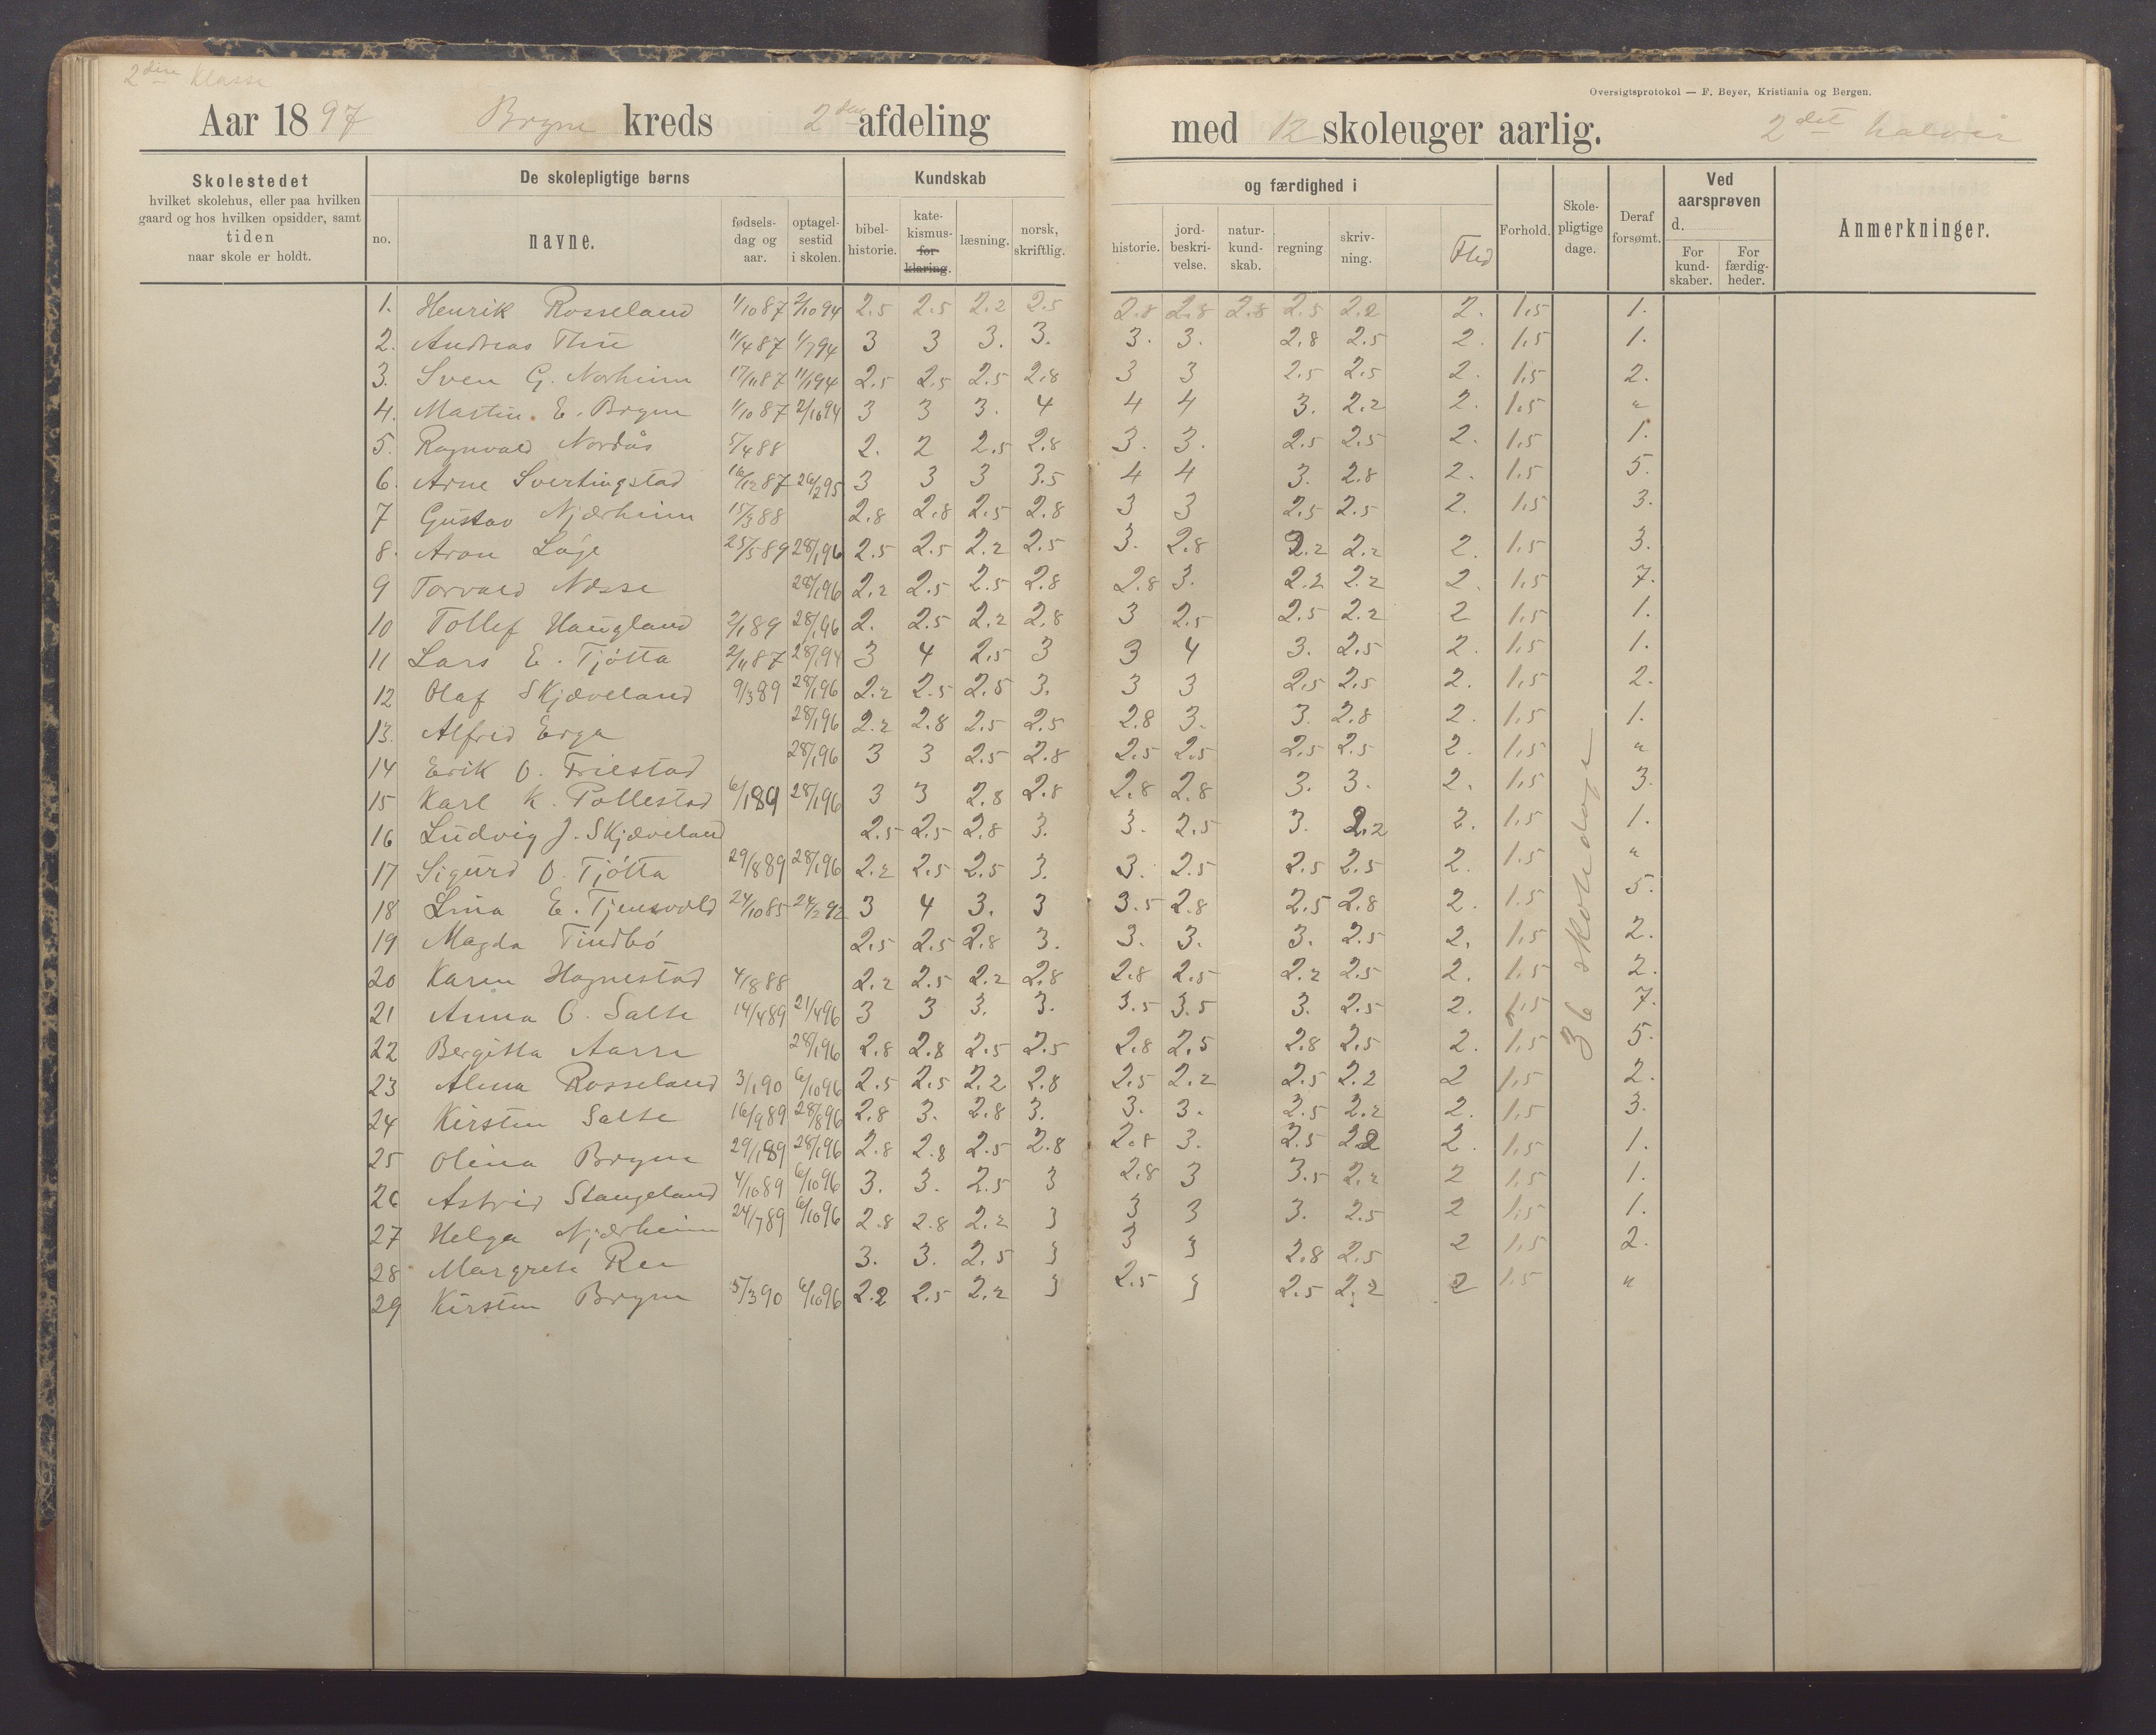 2den Klasse
Oversigtsprotokol — F. Beyer, Kristiania og Bergen.
Aar 1897 Bryne kreds 2den afdeling med 12 skoleuger aarlig. 2det halvår
Skolestedet hvilket skolehus, eller paa hvilken gaard og hos hvilken opsidder, samt tiden naar skole er holdt.
De skolepligtige børns
no. navne. fødselsdag og aar. optagelsestid i skolen.
Kundskab og færdighed i
bibelhistorie. katekismusforklaring. læsning. norsk, skriftlig. historie. jordbeskrivelse. naturkundskab. regning skrivning. Flid
Forhold. Skolepligtige dage. Deraf forsømt.
Ved aarsprøven d. For kundskaber. For færdigheder.
Anmerkninger.
1. Henrik Rosseland 1/10 87 2/10 94 2.5 2.5 2.2 2.5 2.8 2.8 2.8 2.5 2.2 2. 1.5 1.
2. Andreas Thu 11/4 87 1/7 94 3 3 3. 3. 3. 3. 2.8 2.5 2. 1.5 1.
3. Sven G. Norheim 17/11 87 11/1 94 2.5 2.5 2.5 2.8 3 3 2.5 2.5 2. 1.5 2.
4. Martin E. Bryne 1/10 87 2/10 94 3 3 3. 4 4 4 3. 2.2 2. 1.5 "
5. Ragnvald Nordås 5/4 88 2. 2 2.5 2.8 3. 3. 2.5 2.5 2. 1.5 1.
6. Arne Svertingstad 16/12 87 26/2 95 3 3 3 3.5 4 4 3. 2.8 2. 1.5 5.
7 Gustav Njærheim 15/3 88 2.8 2.8 2.5 2.8 3 3 2.5 2.5 2. 1.5 3.
8. Aron Løge 25/5 89 28/1 96 2.5 2.5 2.2 2.5 3. 2.8 2.2 2.2 2. 1.5 3.
9 Torvald Nesse 28/1 96 2.2 2.5 2.5 2.8 2.8 3. 2.2 2.2 2. 1.5 7.
10 Tollef Haugland 2/1 89 28/1 96 2. 2.5 2.2 2.8 3 2.5 2.5 2.2 2 1.5 1.
11 Lars E. Tjøtta 2/11 87 28/1 94 3 4 2.5 3 3 4 3. 2.5 2. 1.5 1.
12 Olaf Skjæveland 9/3 89 28/1 96 2.2 2.5 2.5 3. 3 3 2.5 2.5 2. 1.5 2.
13. Alfred Erga 28/1 96 2.2 2.8 2.5 2.5 2.8 3. 3. 2.8 2. 1.5 1.
14 Erik O. Friestad 28/1 96 3 3 2.5 2.8 2.5 2.5 2.5 2.5 2. 1.5 "
15 Karl K. Pollestad 6/1 89 28/1 96 3 3 2.8 2.8 2.8 2.8 3. 3. 2. 1.5 3.
16 Ludvig J. Skjæveland 2.5 2.5 2.8 3. 3. 2.5 3. 2.2 2. 1.5 1.
17 Sigurd O. Tjøtta 29/8 89 28/1 96 2.2 2.5 2.5 3. 3. 2.5 2.5 2.5 2. 1.5 "
18 Lina E. Tjensvold 24/10 85 24/2 92 3 4 3. 3 3.5 2.8 2.5 2.8 2. 1.5 5.
19 Magda Tindbø 2.5 2.5 2.8 3. 3. 3. 3. 2.5 2. 1.5 2.
20 Karen Hognestad 4/8 88 2.2 2.5 2.2 2.8 2.8 2.5 2.2 2.5 2. 1.5 2.
21 Anna O. Salte 14/4 89 21/4 96 3 3 3. 3. 3.5 3.5 3. 2.5 2. 1.5 7.
22 Bergitta Aarre 28/1 96 2.8 2.8 2.5 2.5 2.8 2.5 2.8 2.5 2. 1.5 5.
23 Alma Rosseland 3/1 90 6/10 96 2.5 2.5 2.2 2.8 2.5 2.2 2.5 2.2 2 1.5 2.
24 Kirsten Salte 16/9 89 28/8 96 2.8 3. 2.8 3. 3. 3. 2.5 2.2 2. 1.5 3.
25 Olina Bryne 29/1 89 28/1 96 2.8 2.8 2.5 2.8 2.8 3. 2.5 2.2 2. 1.5 1.
26 Astrid Stangeland 4/10 89 6/10 96 3. 3. 2.5 3 2.8 3 3.5 2.2 2 1.5 1.
27 Helga Njærheim 24/7 89 6/10 96 2.8 2.8 2.2 3 3 3 3. 2.5 2 1.5 1.
28 Margrete Ree 3. 3. 2.5 3 3 3 2.8 2.5 2 1.5 2.
29 Kirsten Bryne 5/3 90 6/10 96 2.2 2.5 2.2 3 2.5 3 2.5 2.2 2 1.5 "
36 skoledage